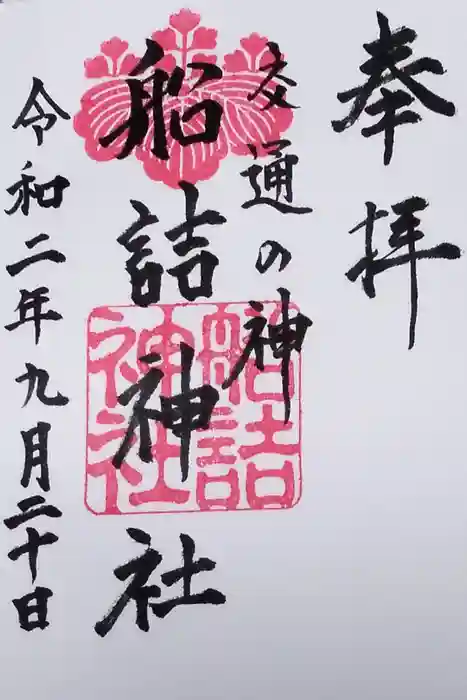 奉拝
交通の神
船詰神社
船詰神社
令和二年九月二十日